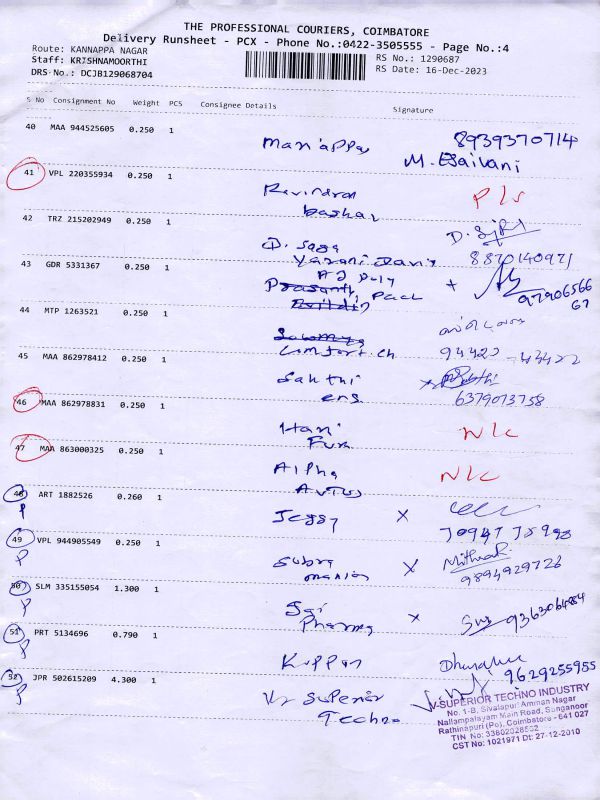 THE PROFESSIONAL COURIERS, COIMBATORE
Delivery Runsheet - PCX - Phone No.:0422-3505555 - Page No.:4
Route: KANNAPPA NAGAR
RS No.: 1290687
Staff: KRISHNAMOORTHI
RS Date: 16-Dec-2023
DRS-No.: DCJB129068704
S No Consignment No Weight PCS Consignee Details Signature
40 MAA 944525605 0.250 1
8939370714
M. Esaivani
41 VPL 220355934 0.250 1 Ravindran P/s
baskar
42 TRZ 215202949 0.250 1 D. Saga
8870140971
43 GDR 5331367 0.250 1 Prasanth Pack x 97906566
67
44 MTP 1263521 0.250 1
Comfort.ch 94422 - 43422
45 MAA 862978412 0.250 1 Sakthi
eng 6379073758
46 MAA 862978831 0.250 1 Hari N/c
Fur
47 MAA 863000325 0.250 1 Alpha N/c
48 ART 1882526 0.260 1 Jessy x
P
49 VPL 944905549 0.250 1 Subra x
P manian 9894929726
50 SLM 335155054 1.300 1 Sai x 9363064984
P Pharma
51 PRT 5134696 0.790 1 Kuppan
P 9629255955
52 JPR 502615209 4.300 1 V Superior
P Techno
V-SUPERIOR TECHNO INDUSTRY
No. 1-B, Sivalapuri Amman Nagar
Nallampalayam Main Road, Sanganoor
Rathinapuri (Po), Coimbatore - 641 027
TIN No: 33802028502
CST No: 1021971 Dt: 27-12-2010